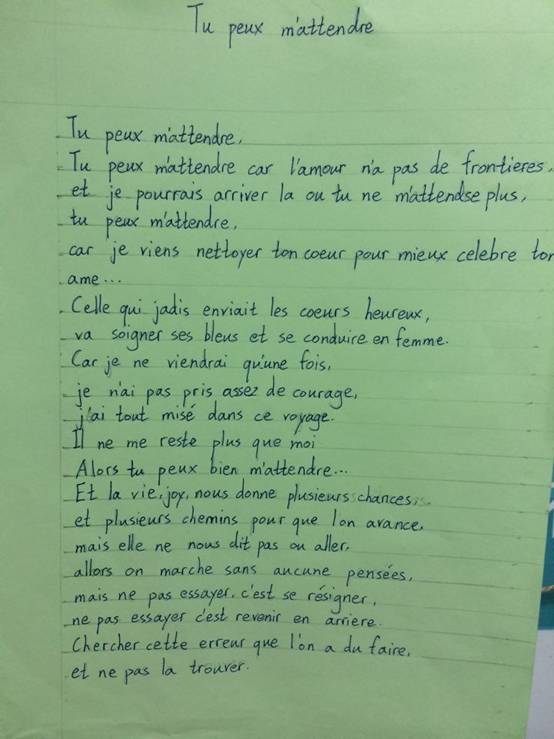 Tu peux m'attendre
Tu peux m'attendre,
Tu peux m'attendre car l'amour n'a pas de frontieres,
et je pourrais arriver la ou tu ne m'attendse plus,
tu peux m'attendre,
car je viens nettoyer ton coeur pour mieux celebre ton
ame...
Celle qui jadis enviait les coeurs heureux,
va soigner ses bleus et se conduire en femme.
Car je ne viendrai qu'une fois,
je n'ai pas pris assez de courage,
j'ai tout misé dans ce voyage.
Il ne me reste plus que moi
Alors tu peux bien m'attendre...
Et la vie, joy, nous donne plusieurs chances,
et plusieurs chemins pour que l'on avance,
mais elle ne nous dit pas ou aller,
allors on marche sans aucune pensées,
mais ne pas essayer, c'est se résigner,
ne pas essayer c'est revenir en arriere.
Chercher cette erreur que l'on a du faire,
et ne pas la trouver.